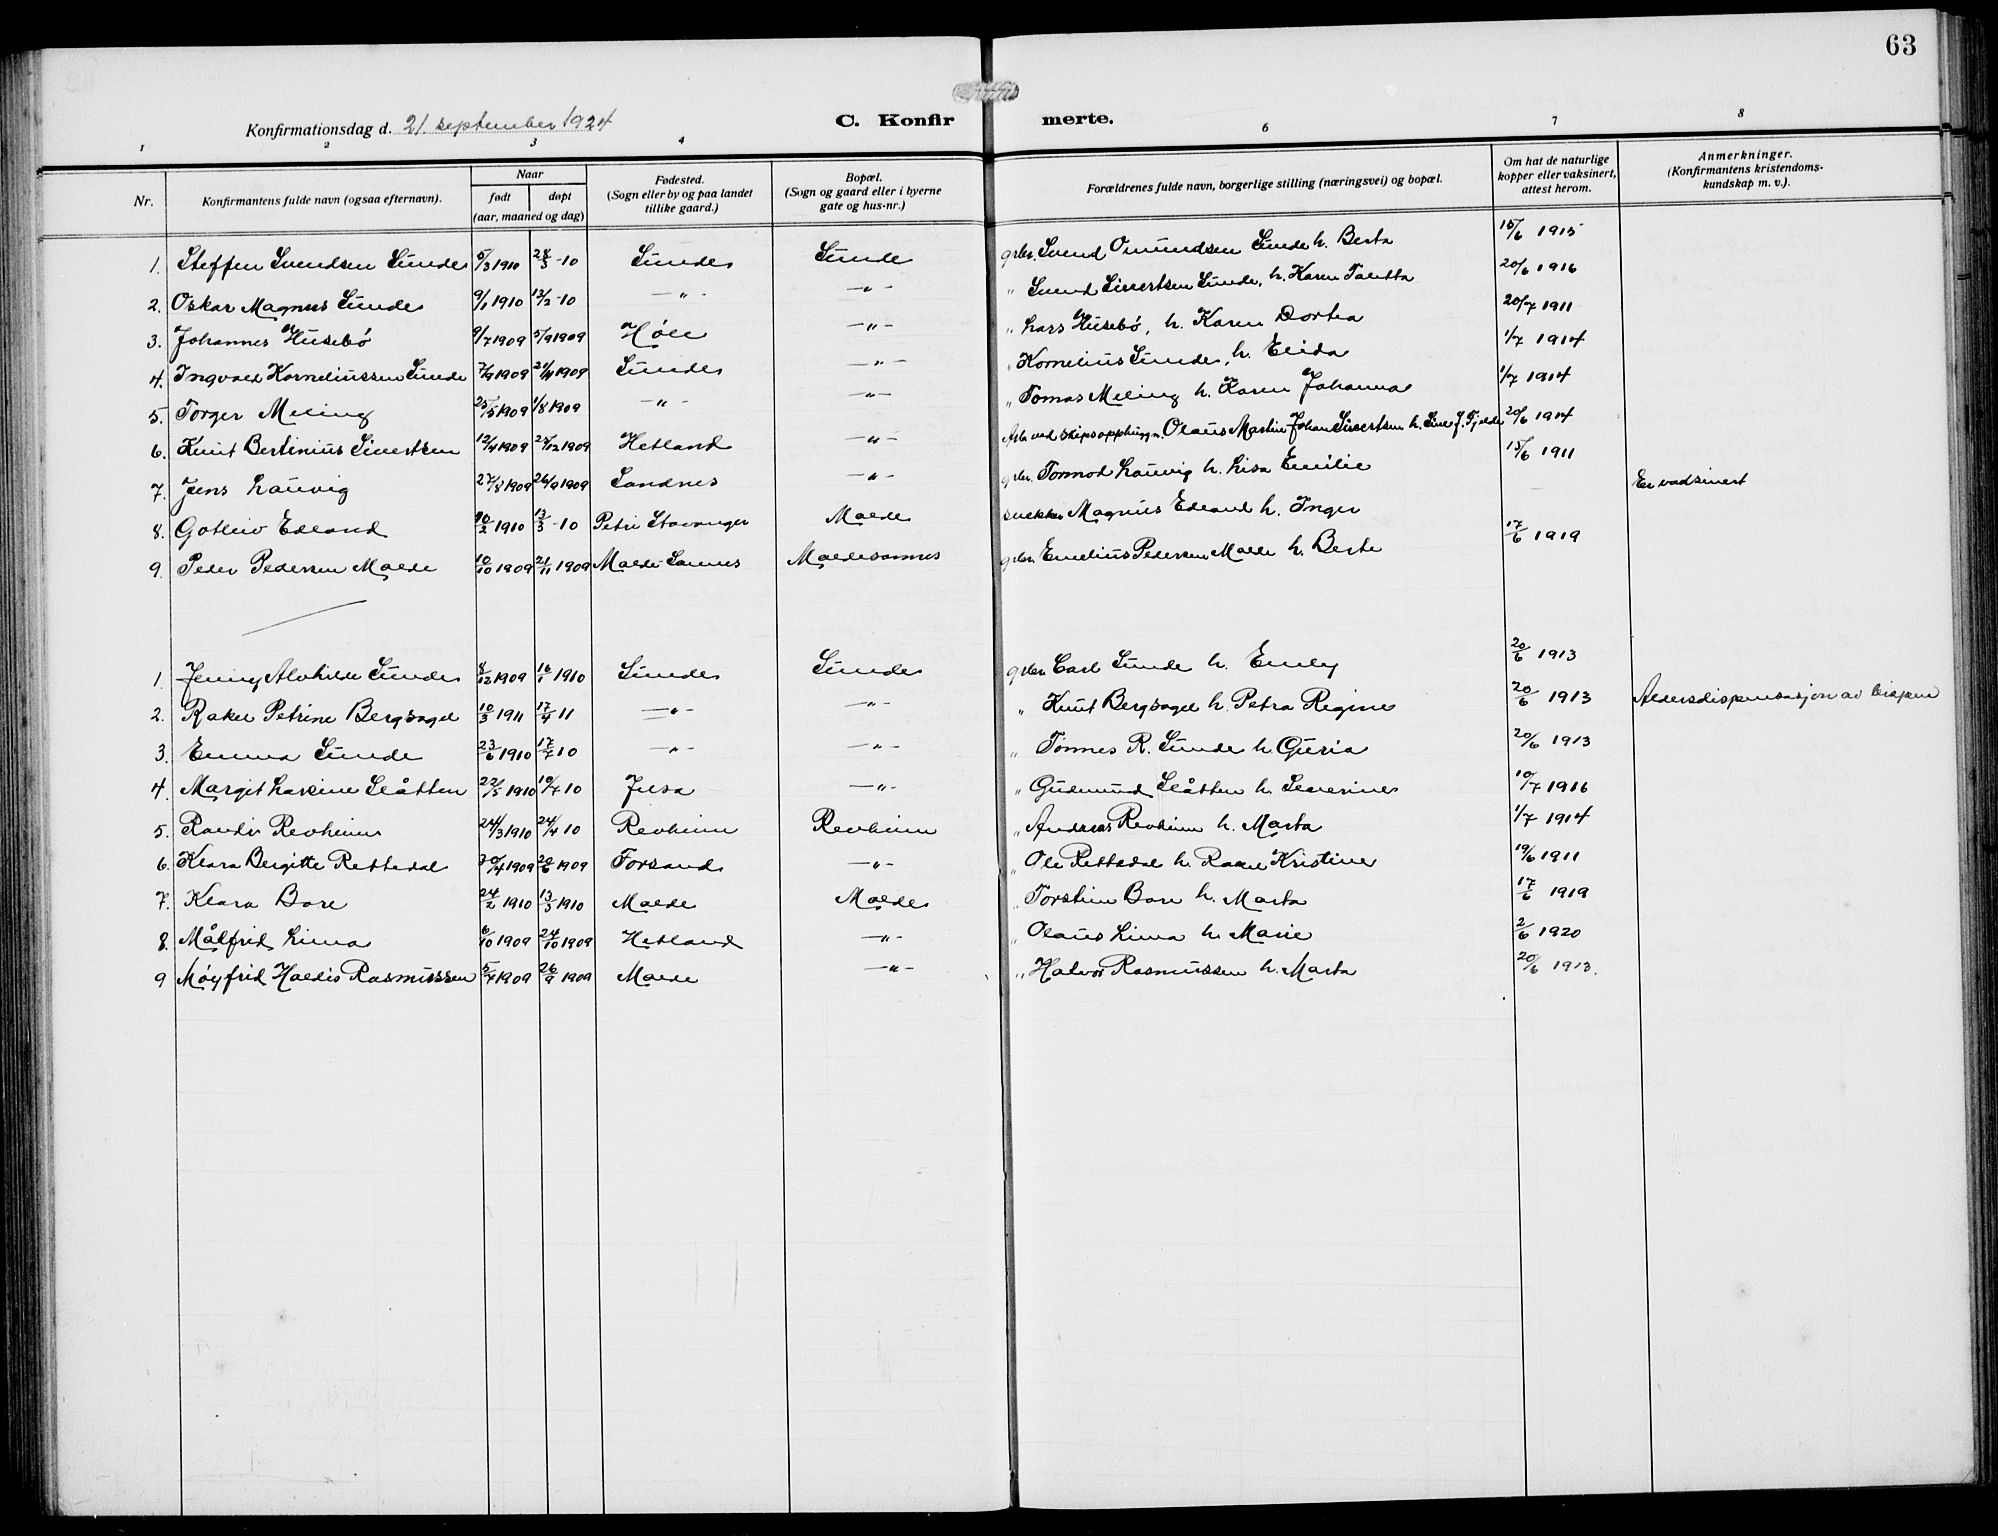 63
Konfirmationsdag d. 21. september 1924 C. Konfirmerte.
1 2 3 4 6 7 8
Nr. Konfirmantens fulde navn (ogsaa efternavn). Naar født døpt (aar, maaned og dag) Fødested. (Sogn eller by og paa landet tillike gaard.) Bopæl. (Sogn og gaard eller i byerne gate og hus-nr.) Forældrenes fulde navn, borgerlige stilling (næringsvei) og bopæl. Om hat de naturlige kopper eller vaksinert, attest herom. Anmerkninger. (Konfirmantens kristendomskundskap m. v.).
1. Steffen Svendsen Sunde 5/3 1910 28/3-10 Sunde Sunde grbr. Svend Omundsen Sunde h. Berta 15/6 1915
2. Oskar Magnus Sunde 9/1 1910 13/2-10 —"— —"— " Svend Sivertsen Sunde, h. Karen Talette 20/6 1916
3. Johannes Husebø 9/7 1909 5/9 1909 Høle —"— " Lars Husebø, h. Karen Dortea 20/7 1911
4. Ingvald Korneliussen Sunde 7/9 1909 21/11 1909 Sunde —"— " Kornelius Sunde, h. Elida 1/7 1914
5. Torger Meling 25/5 1909 1/8 1909 —"— —"— " Tomas Meling h. Karen Johanna 1/7 1914
6. Knut Bertinius Sivertsen 12/4 1909 25/12 1909 Hetland —"— Arb. ved skipsopphugn. Olaus Martin Johan Sivertsen h. Sine J. Fjelde 20/6 1914
7. Jens Lauvig 27/8 1909 26/9 1909 Sandnes —"— grbr. Tormod Lauvig h. Lisa Emilie 15/6 1911
8. Gotleiv Edland 10/2 1910 13/3-10 Petri Stavanger Malde snekker Magnus Edland h. Inger — Er vadsinert
9. Peder Pedersen Malde 10/10 1909 21/11 1909 Malde-Sannes Maldesannes grbr. Emelius Pedersen Malde h. Berte 17/6 1919
1. Jenny Alvhilde Sunde 8/12 1909 16/1 1910 Sunde Sunde grbr. Carl Sunde h. Emly 20/6 1913
2. Rakel Petrine Bergsagel 10/3 1911 17/4 11 —"— —"— " Knut Bergsagel h. Petra Regine 20/6 1913 Aldersdispensasjon av bispen
3. Emma Sunde 23/6 1910 17/7 10 —"— —"— " Tønnes R. Sunde h. Guria 20/6 1913
4. Margit Laksine Slåtten 22/5 1910 10/7 10 Jelsa —"— " Gudmund Slåtten h. Severine 10/7 1916
5. Randi Revheim 24/3 1910 24/4 10 Revheim Revheim " Andreas Revheim h. Marta 1/7 1914
6. Klara Bergitte Rettedal 30/4 1909 20/6 1909 Forsand —"— " Ole Rettedal h. Rakel Kristine 19/6 1911
7. Klara Bore 24/2 1910 13/3 1910 Malde Malde " Torstein Bore h. Marta 17/6 1919
8. Målfrid Lima 6/10 1909 24/10 1909 Hetland —"— " Olaus Lima h. Marie 2/6 1920
9 Møyfrid Haldis Rasmussen 5/7 1909 26/9 1909 Malde —"— " Halvor Rasmussen h. Marta 20/6 1913.